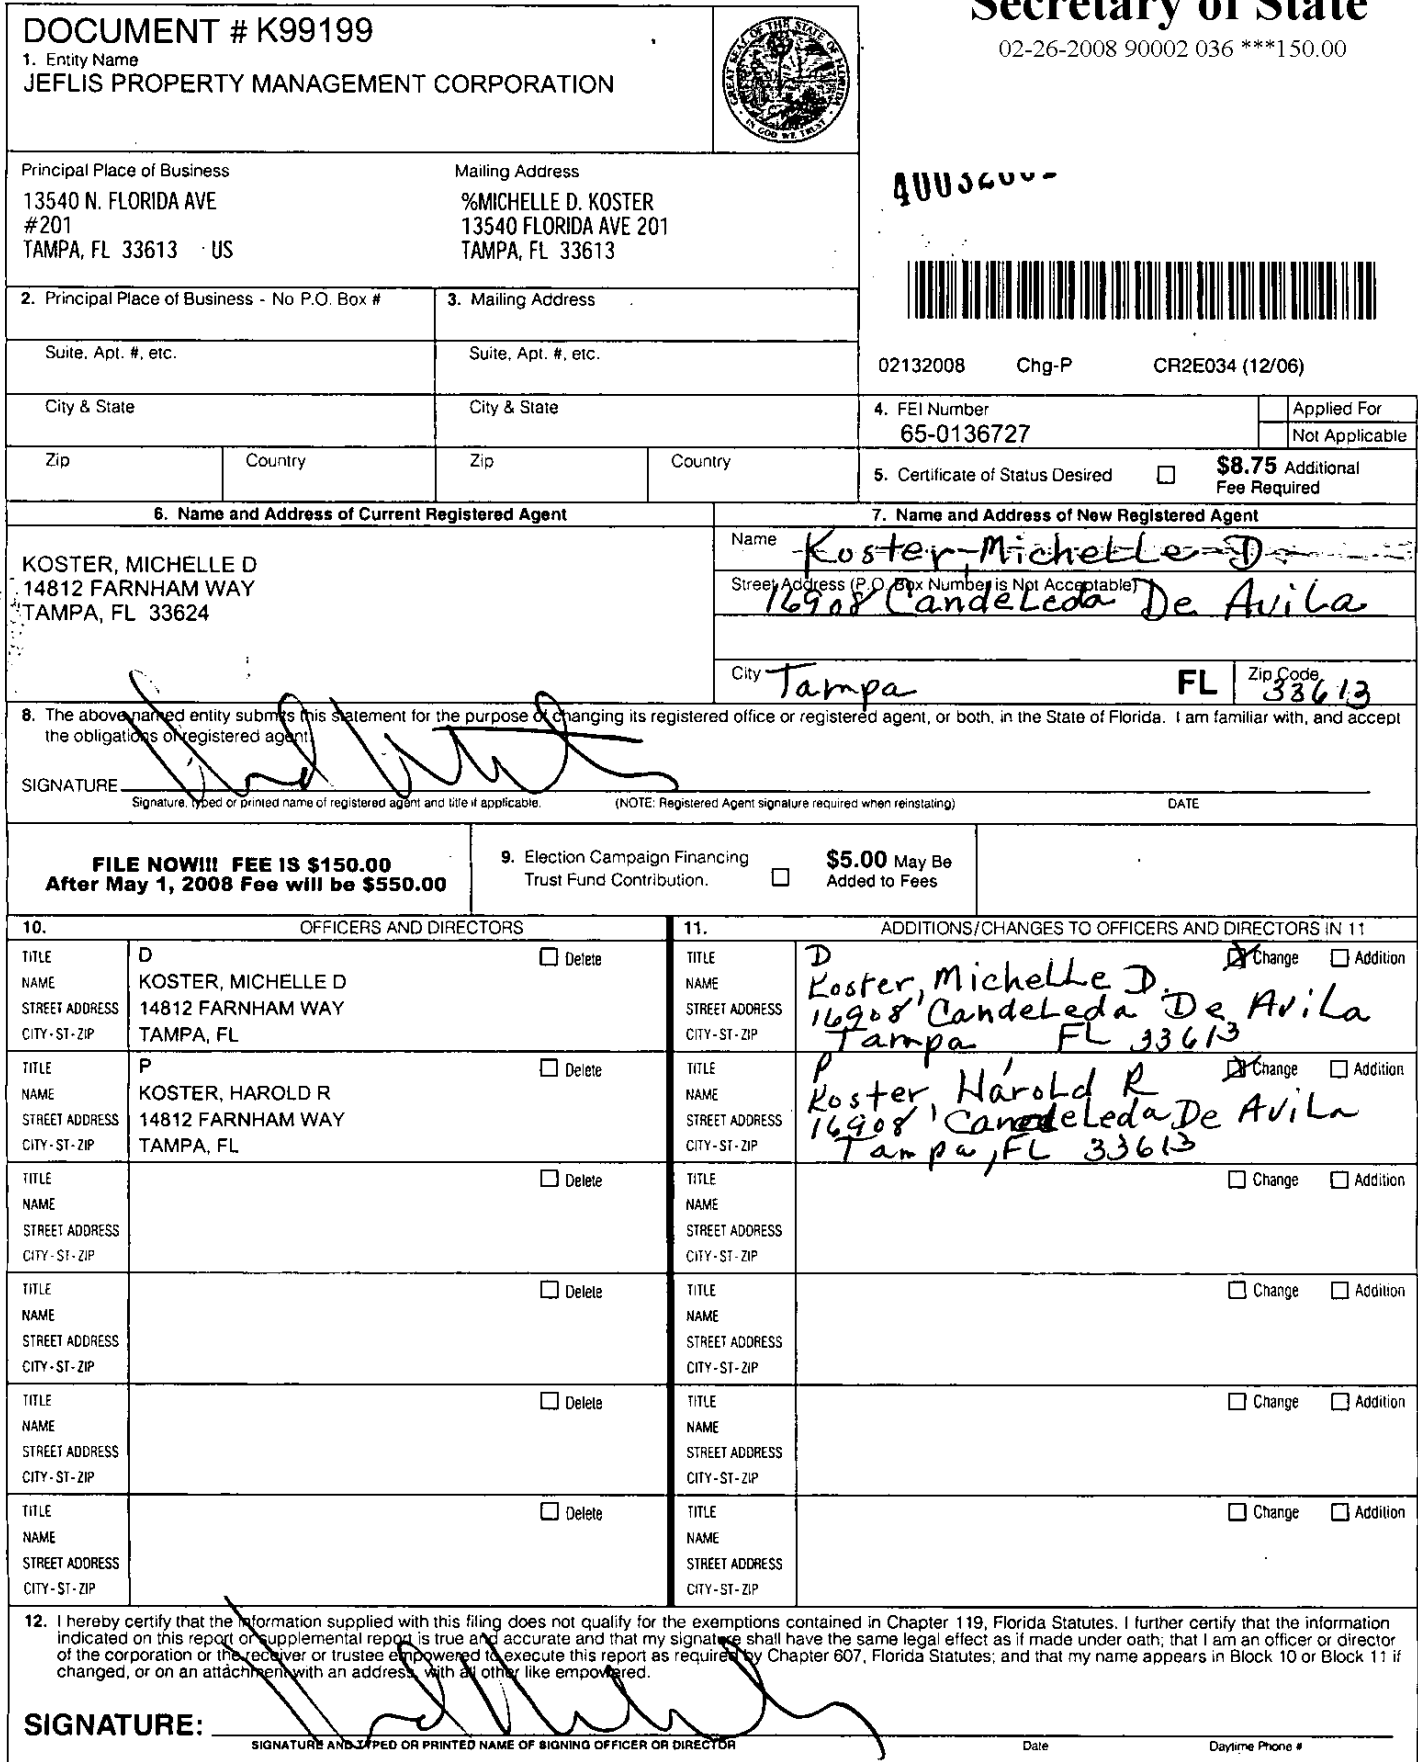 Secretary of State
02-26-2008 90002 036 ***150.00
DOCUMENT # K99199
1. Entity Name
JEFLIS PROPERTY MANAGEMENT CORPORATION
GREAT SEAL OF THE STATE OF FLORIDA
IN GOD WE TRUST
Principal Place of Business
13540 N. FLORIDA AVE
#201
TAMPA, FL 33613 US
Mailing Address
%MICHELLE D. KOSTER
13540 FLORIDA AVE 201
TAMPA, FL 33613
2. Principal Place of Business - No P.O. Box #
3. Mailing Address
Suite, Apt. #, etc.
Suite, Apt. #, etc.
02132008 Chg-P CR2E034 (12/06)
City & State
City & State
4. FEI Number
65-0136727
Applied For
Not Applicable
Zip
Country
Zip
Country
5. Certificate of Status Desired
$8.75 Additional
Fee Required
6. Name and Address of Current Registered Agent
KOSTER, MICHELLE D
14812 FARNHAM WAY
TAMPA, FL 33624
7. Name and Address of New Registered Agent
Name Koster, Michelle D.
Street Address (P.O. Box Number is Not Acceptable)
16908 Candeleda De Avila
City Tampa FL Zip Code 33613
8. The above named entity submits this statement for the purpose of changing its registered office or registered agent, or both, in the State of Florida. I am familiar with, and accept
the obligations of registered agent.
SIGNATURE
Signature, typed or printed name of registered agent and title if applicable. (NOTE: Registered Agent signature required when reinstating) DATE
FILE NOW!!! FEE IS $150.00
After May 1, 2008 Fee will be $550.00
9. Election Campaign Financing
Trust Fund Contribution.
$5.00 May Be
Added to Fees
10. OFFICERS AND DIRECTORS
11. ADDITIONS/CHANGES TO OFFICERS AND DIRECTORS IN 11
TITLE D Delete
NAME KOSTER, MICHELLE D
STREET ADDRESS 14812 FARNHAM WAY
CITY-ST-ZIP TAMPA, FL
TITLE D Change Addition
NAME Koster, Michelle D.
STREET ADDRESS 16908 Candeleda De Avila
CITY-ST-ZIP Tampa FL 33613
TITLE P Delete
NAME KOSTER, HAROLD R
STREET ADDRESS 14812 FARNHAM WAY
CITY-ST-ZIP TAMPA, FL
TITLE P Change Addition
NAME Koster, Harold R
STREET ADDRESS 16908 Candeleda De Avila
CITY-ST-ZIP Tampa, FL 33613
TITLE Delete
NAME
STREET ADDRESS
CITY-ST-ZIP
TITLE Change Addition
NAME
STREET ADDRESS
CITY-ST-ZIP
TITLE Delete
NAME
STREET ADDRESS
CITY-ST-ZIP
TITLE Change Addition
NAME
STREET ADDRESS
CITY-ST-ZIP
TITLE Delete
NAME
STREET ADDRESS
CITY-ST-ZIP
TITLE Change Addition
NAME
STREET ADDRESS
CITY-ST-ZIP
TITLE Delete
NAME
STREET ADDRESS
CITY-ST-ZIP
TITLE Change Addition
NAME
STREET ADDRESS
CITY-ST-ZIP
12. I hereby certify that the information supplied with this filing does not qualify for the exemptions contained in Chapter 119, Florida Statutes. I further certify that the information
indicated on this report or supplemental report is true and accurate and that my signature shall have the same legal effect as if made under oath; that I am an officer or director
of the corporation or the receiver or trustee empowered to execute this report as required by Chapter 607, Florida Statutes; and that my name appears in Block 10 or Block 11 if
changed, or on an attachment with an address, with all other like empowered.
SIGNATURE:
SIGNATURE AND TYPED OR PRINTED NAME OF SIGNING OFFICER OR DIRECTOR Date Daytime Phone #